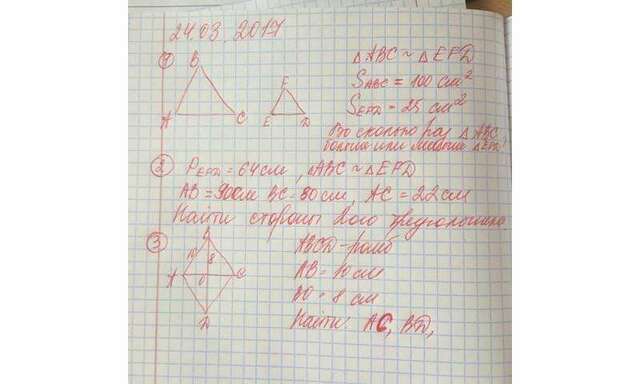 24.03.2017
① B
A C
F
E D
△ABC ~ △EFD
S ABC = 100 см²
S EFD = 25 см²
Во сколько раз △ABC
больше или меньше △EFD
② P EFD = 64 см, △ABC ~ △EFD
AB = 90 см BC = 80 см, AC = 22 см
Найти стороны треугольника
③ B
10 8
A O C
D
ABCD - ромб
AB = 10 см
BO = 8 см
Найти: AC, BD,